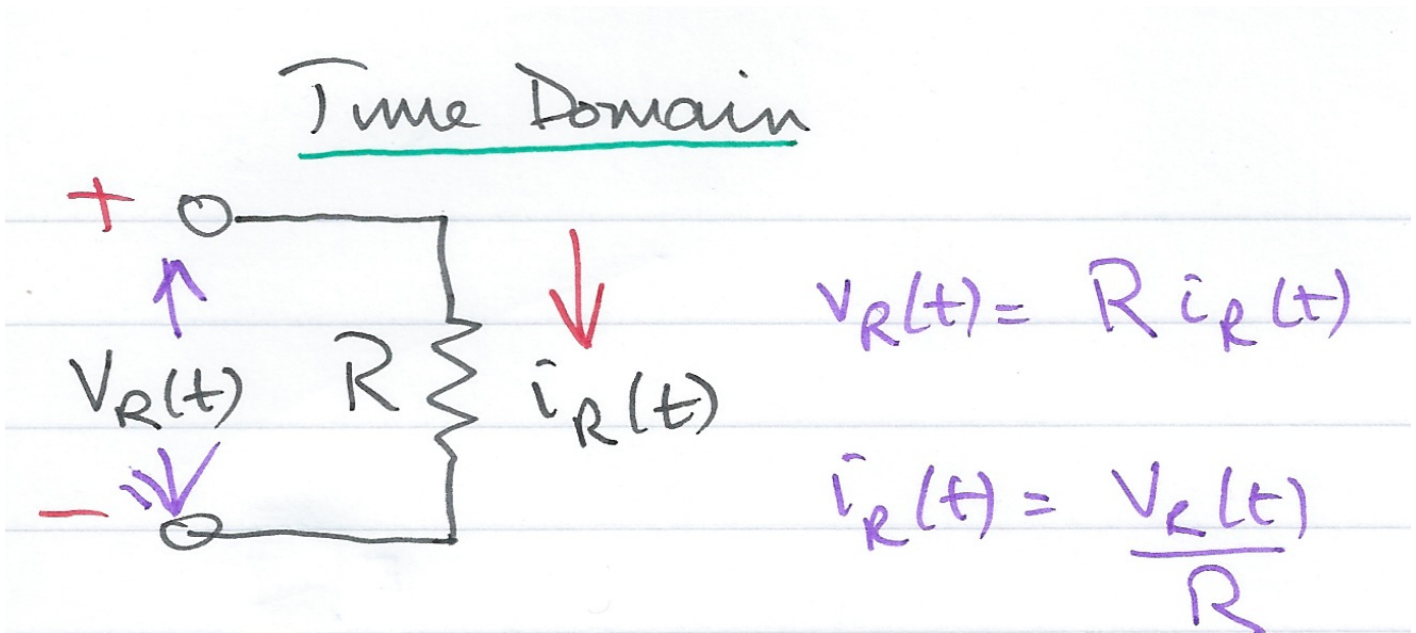 Time Domain
+
v_R(t) = R i_R(t)
V_R(t) R i_R(t)
−
i_R(t) = V_R(t)/R